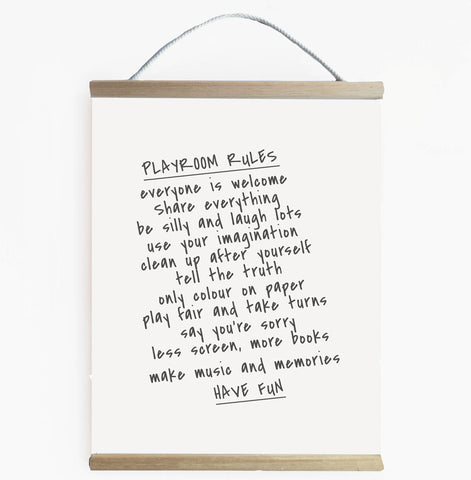 PLAYROOM RULES
everyone is welcome
share everything
be silly and laugh lots
use your imagination
clean up after yourself
tell the truth
only colour on paper
play fair and take turns
say you're sorry
less screen, more books
make music and memories
HAVE FUN